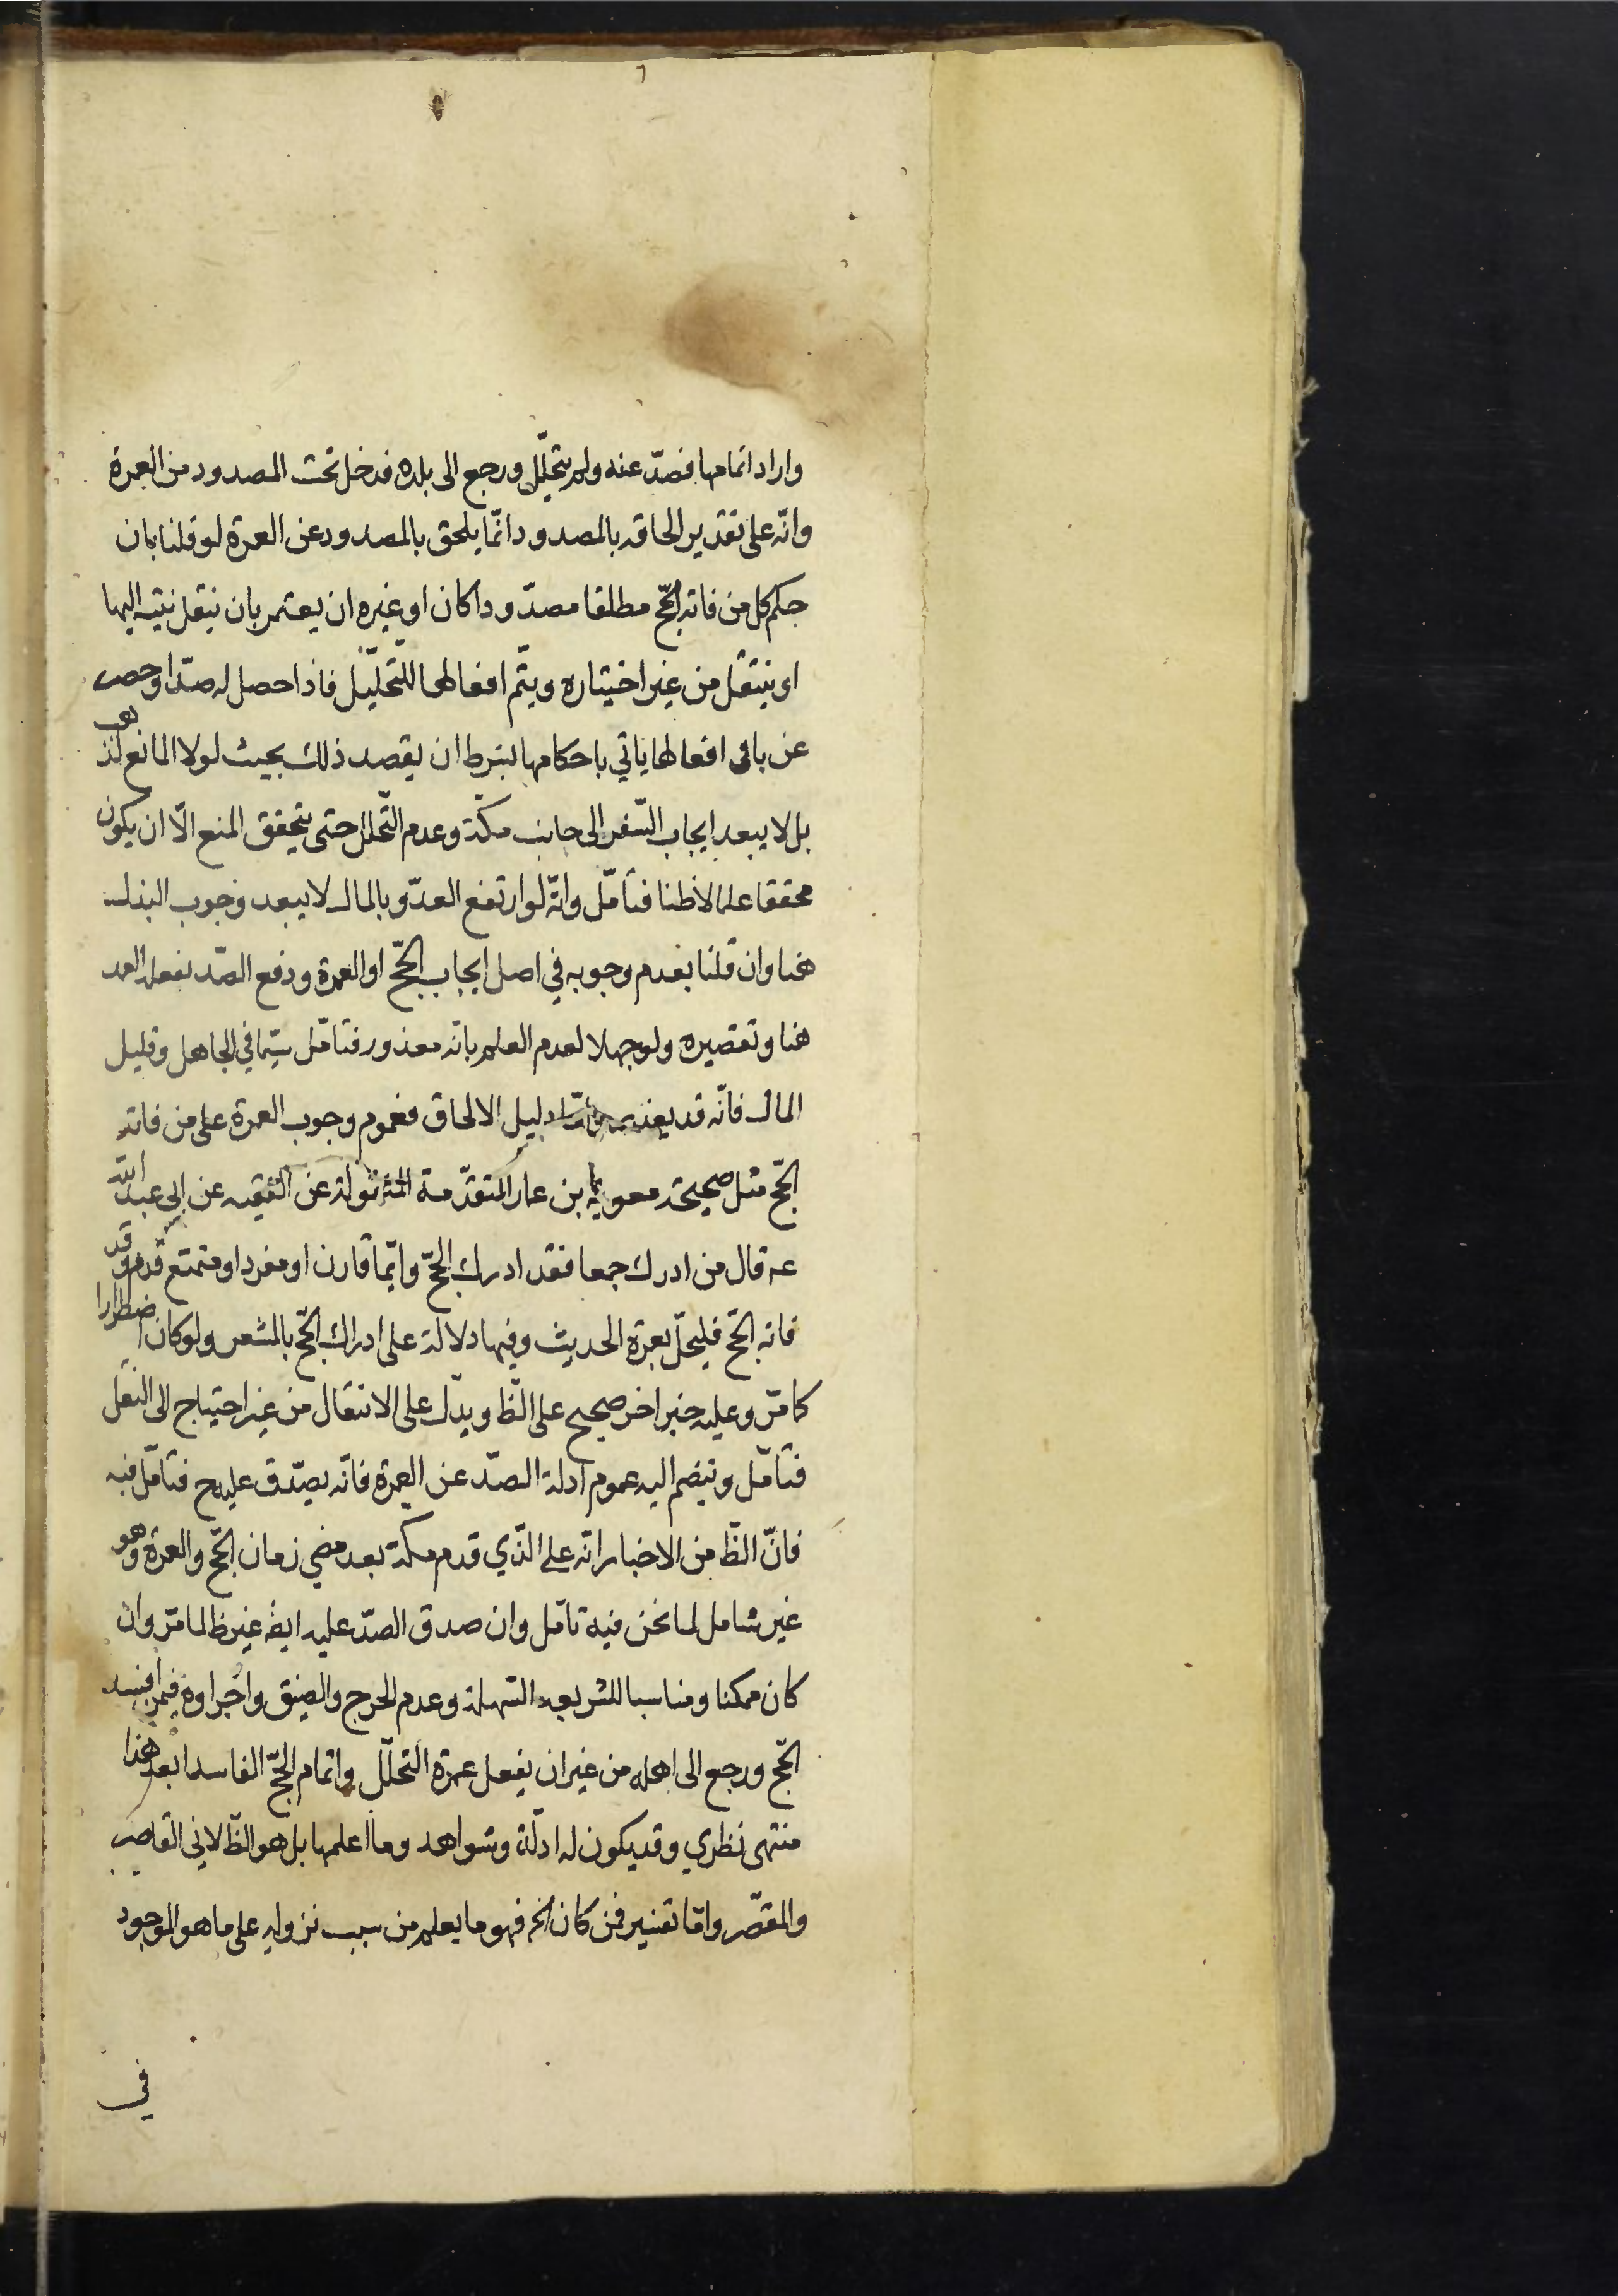 واراد اتمامها فصدّ عنه ولم يتحلّل ورجع الى بلده فدخل تحت المصدود من العمرة
وانّه على تقدير الحاقه بالمصدود انّما يلحق بالمصدود عن العمرة لو قلنا بان
حكم كل من فاته الحجّ مطلقا مصدّودا كان او غيره ان يعتمر بان ينقل نيته اليها
او ينتقل من غير اختياره ويتم افعالها للتحليل فاذا حصل له صدّ او حصر
عن باقى افعالها ياتي باحكامها بشرط ان يقصد ذلك بحيث لولا المانع لذهب
بل لا يبعد ايجاب السّفر الى جانب مكّة وعدم التّحلل حتى يتحقق المنع الّا ان يكون
محققا علما لا ظنا فتامّل وانّه لو ارتفع العدّو بالمال لا يبعد وجوب البذل
هنا وان قلنا بعدم وجوبه في اصل ايجاب الحجّ او العمرة ودفع الصّد بفعله العمد
هنا وتقصيره ولو جهلا لعدم العلم بانه معذور فتامّل سيّما في الجاهل وقليل
المال فانّه قد يعذر وامّا دليل الالحاق فعموم وجوب العمرة على من فاته
الحجّ مثل صحيحة معوية بن عمار المتقدّمة المنقولة عن الفقيه عن ابي عبد الله
عه قال من ادرك جمعا فقد ادرك الحجّ وايّما قارن او مفرد او متمتع قدم وقد
فاته الحجّ فليحلّ بعمرة الحديث وفيها دلالة على ادراك الحجّ بالمشعر ولو كان اضطرارا
كما مرّ وعليه خبر اخر صحيح على الظّ ويدلّ على الانتقال من غير احتياج الى النقل
فتامّل وتنضم اليه عموم ادلة الصّد عن العمرة فانّه يصدّق عليه ح فتامّل فيه
فانّ الظّ من الاخبار انّه على الذّي قدم مكة بعد مضي زمان الحجّ والعمرة وهو
غير شامل لما نحن فيه تامّل وان صدق الصدّ عليه ايضه غير ظ لما مرّ وان
كان ممكنا ومناسبا للشريعه السّهلة وعدم الحرج والضيق واجراوه فيمن افسد
الحجّ ورجع الى اهله من غير ان يفعل عمرة التحلّل واتمام الحجّ الفاسد ابعد هذا
منتهى نظري وقد يكون له ادلّة وشواهد وما اعلمها بل هو الظّ لاني القاصر
والمقصّر وامّا تفسير فمن كان الخ فهو ما يعلم من سبب نزوله على ما هو الموجود
في